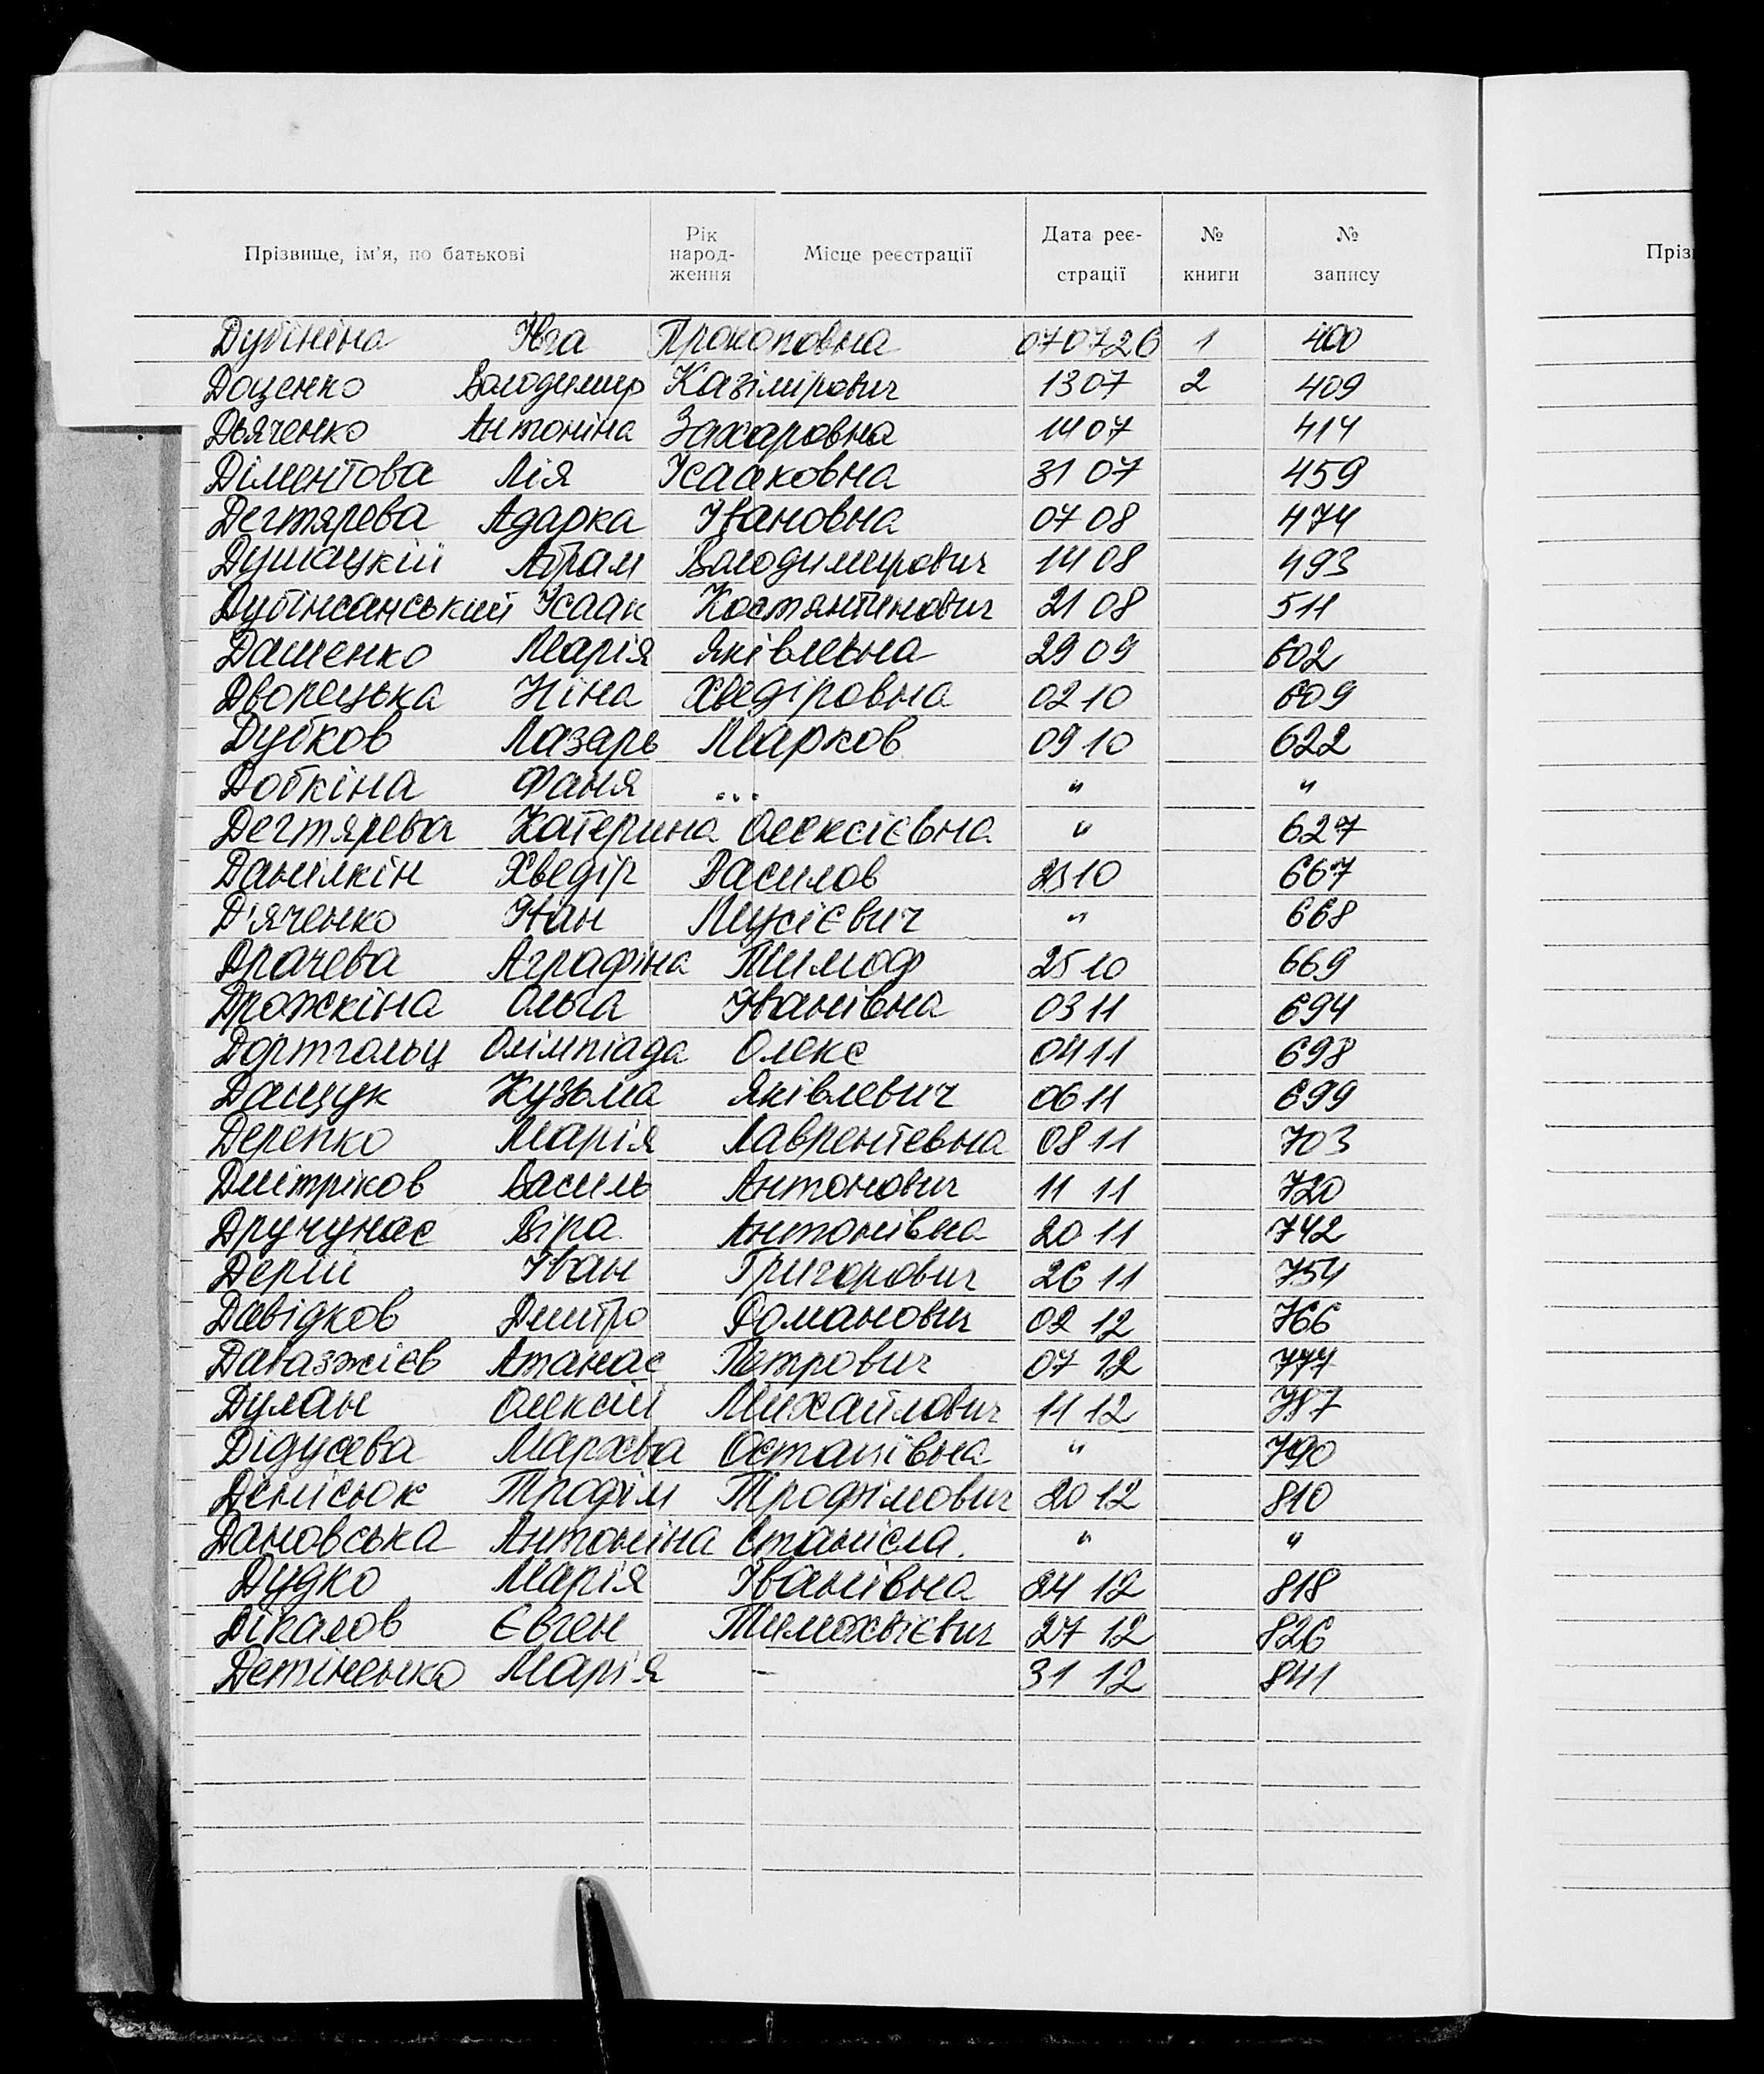 Прізвище, ім'я, по батькові Рік народ-ження Місце реєстрації Дата реє-страції № книги № запису Пріз
Дубініна Ївга Прокоповна 070726 1 400
Доценко Володимир Казімірович 13 07 2 409
Дьяченко Антоніна Захаровна 14 07 414
Діментова Лія Ісааковна 31 07 459
Дегтярева Адарка Івановна 07 08 474
Душацкій Абрам Володимирович 14 08 493
Дубінсанський Ісаак Костянтинович 21 08 511
Дашенко Марія Яківлевна 29 09 602
Дворецька Ніна Хведіровна 02 10 609
Дубков Лазарь Марков 09 10 622
Добкіна Фаня ... " "
Дегтярева Катерина Олексієвна " 627
Данілкін Хведір Василов 23 10 667
Д'яченко Іван Мусієвич " 668
Драчева Аграфіна Тимоф 25 10 669
Дрожкіна Ольга Іванівна 03 11 694
Дортгольц Олімпіада Олекс 04 11 698
Дащук Кузьма Яківлевич 06 11 699
Дерепко Марія Лаврентевна 08 11 703
Дмітріков Василь Антонович 11 11 720
Дручунас Віра Антонівна 20 11 742
Дерій Іван Григорович 26 11 754
Давідков Дмитро Романович 02 12 766
Давазжієв Атанас Петрович 07 12 774
Дулан Олексій Михайлович 11 12 787
Дідусева Мархва Остапівна " 790
Денісюк Трофім Трофімович 20 12 810
Дановська Антоніна Станісла. " "
Дудко Марія Іванівна 24 12 818
Дікалов Євген Тимохвієвич 27 12 826
Детіненко Марія - 31 12 841